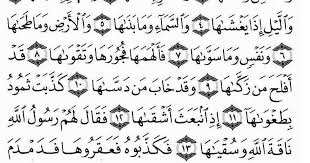 وَٱلَّيْلِ إِذَا يَغْشَىٰهَا ٤ وَٱلسَّمَآءِ وَمَا بَنَىٰهَا ٥ وَٱلْأَرْضِ وَمَا طَحَىٰهَا
٦ وَنَفْسٍ وَمَا سَوَّىٰهَا ٧ فَأَلْهَمَهَا فُجُورَهَا وَتَقْوَىٰهَا ٨ قَدْ
أَفْلَحَ مَن زَكَّىٰهَا ٩ وَقَدْ خَابَ مَن دَسَّىٰهَا ١٠ كَذَّبَتْ ثَمُودُ
بِطَغْوَىٰهَآ ١١ إِذِ ٱنۢبَعَثَ أَشْقَىٰهَا ١٢ فَقَالَ لَهُمْ رَسُولُ ٱللَّهِ
نَاقَةَ ٱللَّهِ وَسُقْيَٰهَا ١٣ فَكَذَّبُوهُ فَعَقَرُوهَا فَدَمْدَمَ